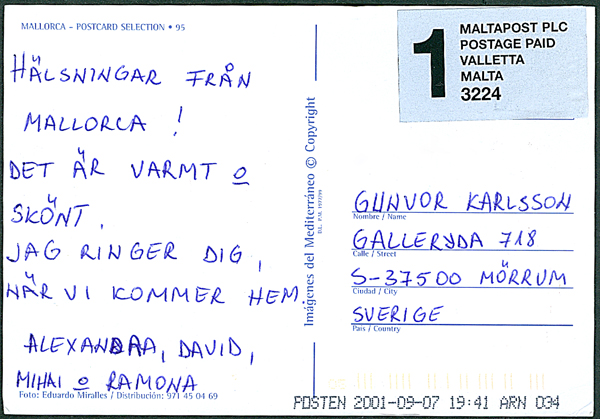 MALLORCA - POSTCARD SELECTION • 95
HÄLSNINGAR FRÅN
MALLORCA !
DET ÄR VARMT o
SKÖNT.
JAG RINGER DIG,
NÄR VI KOMMER HEM.
ALEXANDRA, DAVID,
MIHAI o RAMONA
Foto: Eduardo Miralles / Distribución: 971 45 04 69
Imágenes del Mediterráneo © Copyright
1
MALTAPOST PLC
POSTAGE PAID
VALLETTA
MALTA
3224
GUNVOR KARLSSON
Nombre / Name
GALLERYDA 718
Calle / Street
S-37500 MÖRRUM
Ciudad / City
SVERIGE
Pais / Country
POSTEN 2001-09-07 19:41 ARN 034